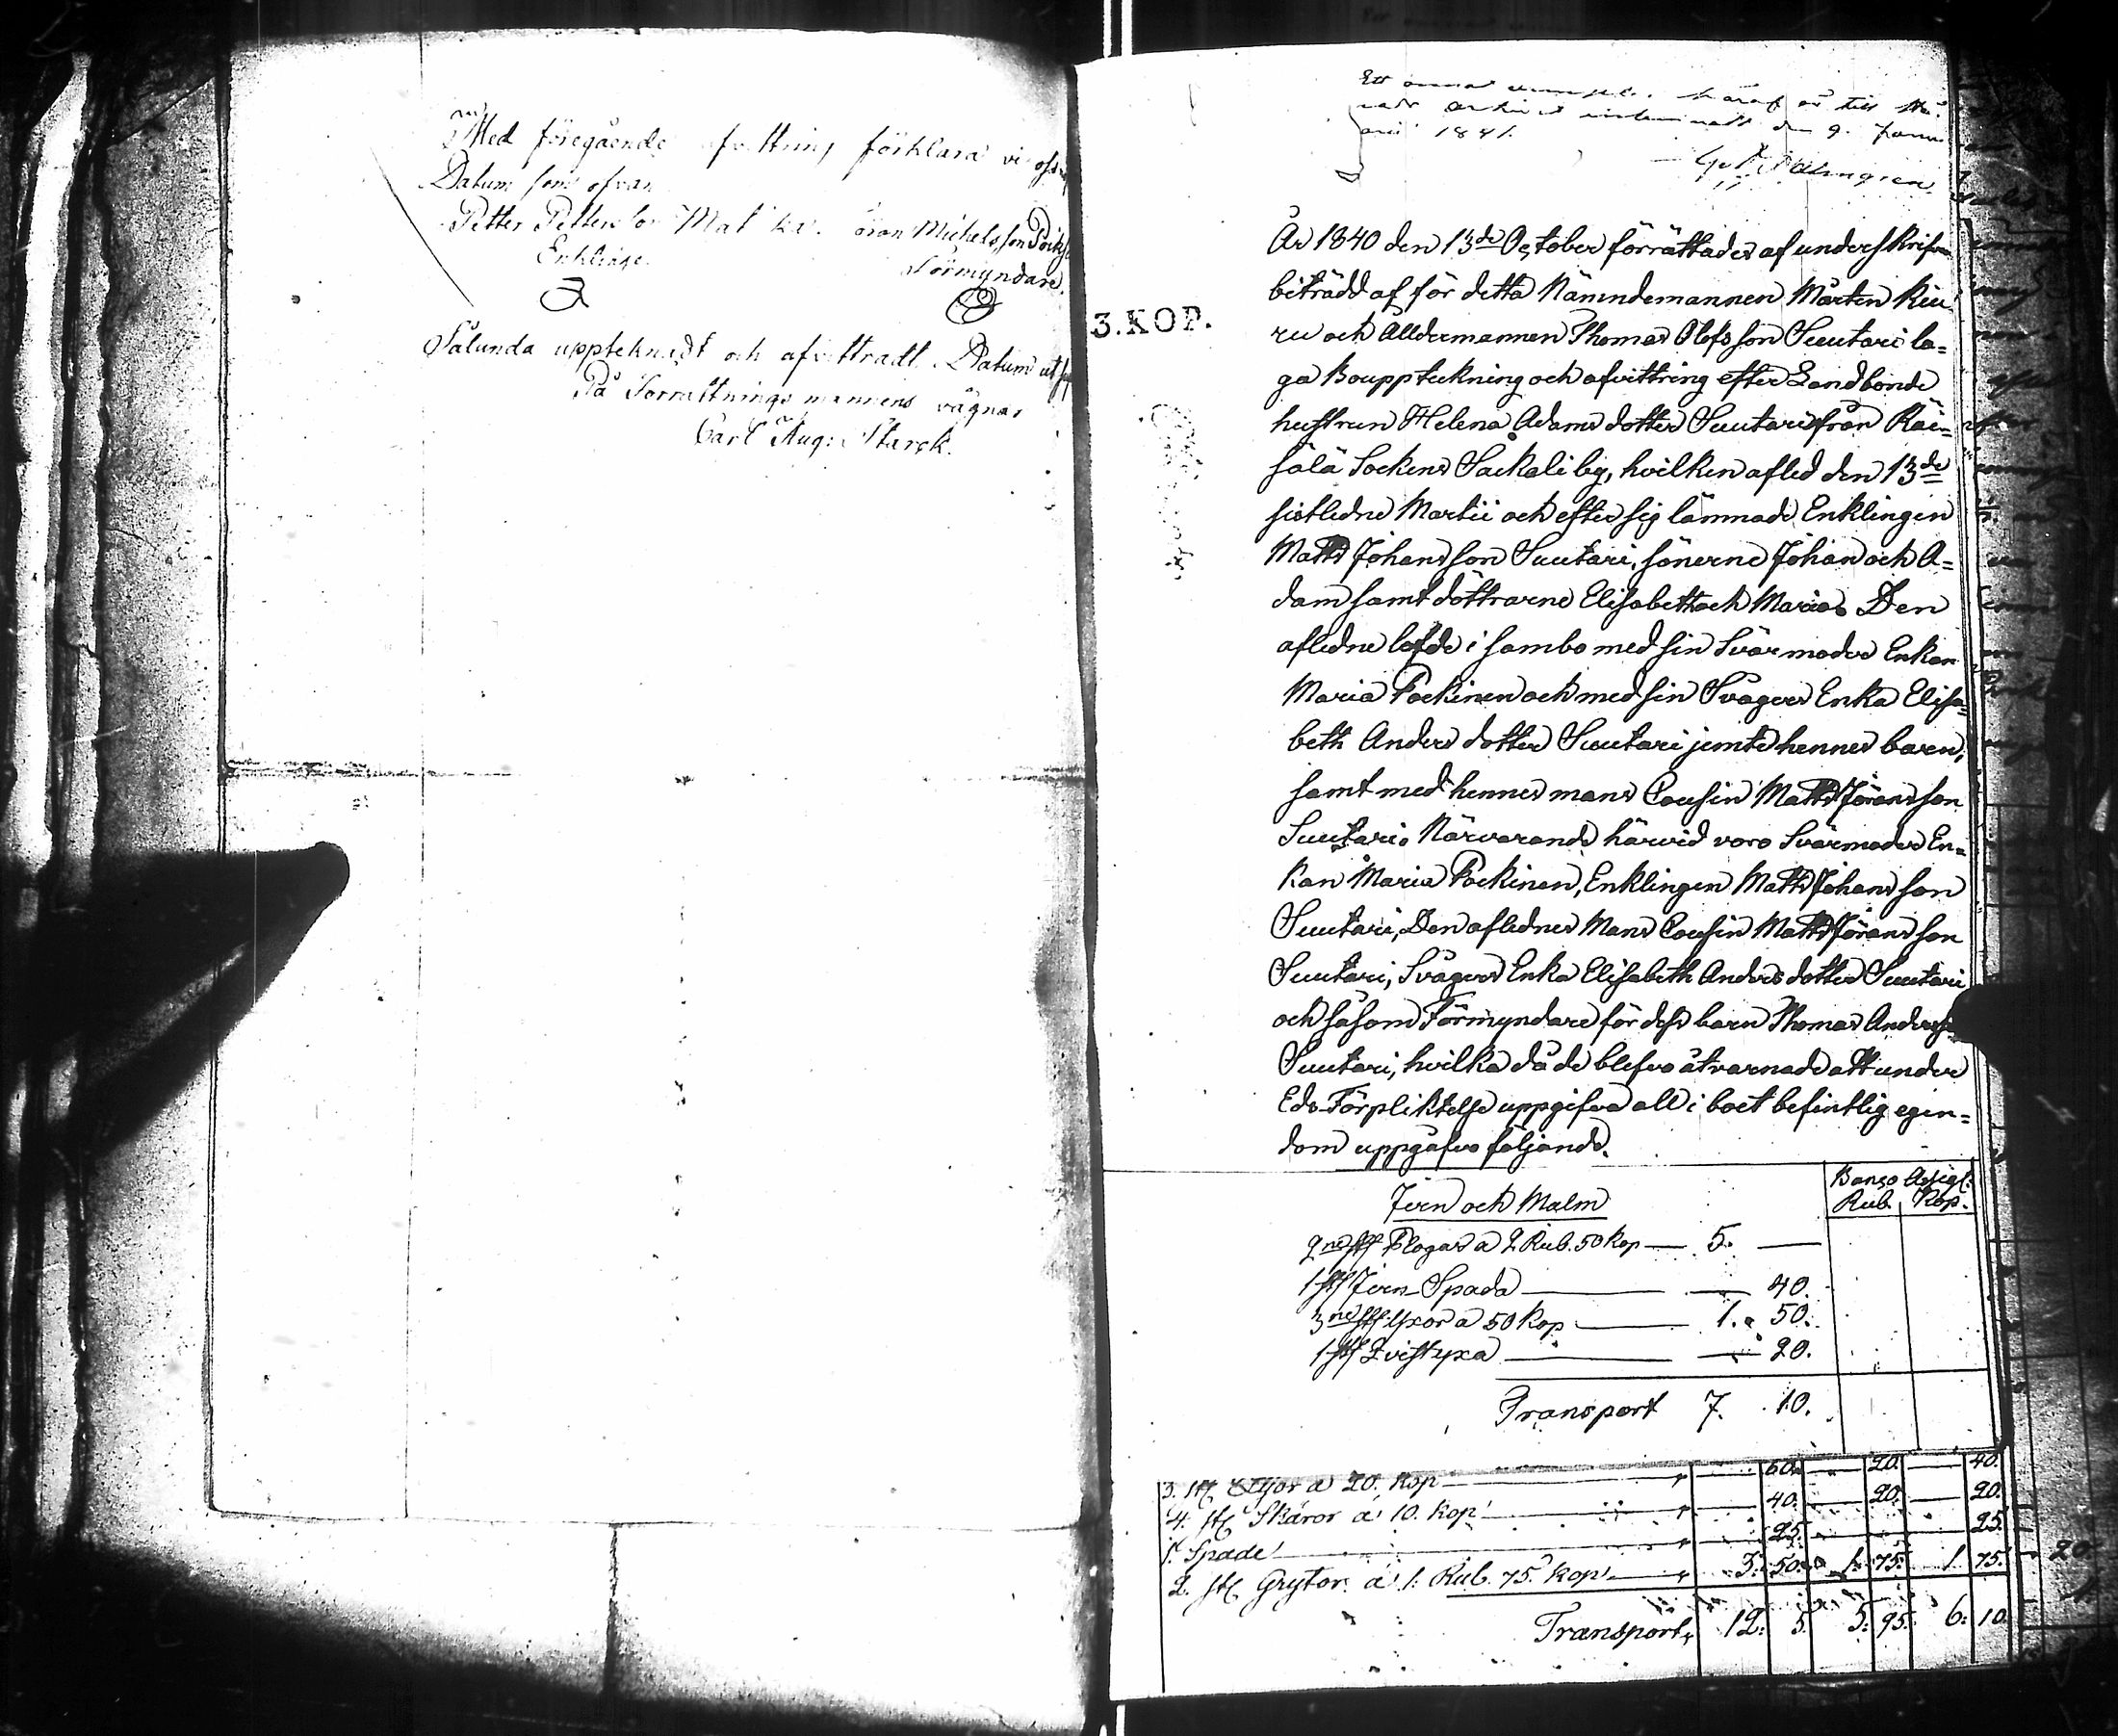 Med föregående afvittring förklara vi oss
Datum som ofvan
Petter Petters son Mat Göran Michelsson
Enklinge. Förmyndare.
Sålunda uppteknadt och afvittradt. Datum ut
På Förrättnings mannens vägnar
Carl Aug: Starck.
Ett annat häraf är till
den 9. Janu
arii 1841.
3. KOP.
År 1840 den 13de October förrättades af underskrifven
biträdd af för detta Nämndemannen Mårten Kiu
ru och Ålldermannen Thomas Olofsson Suutari la=
ga Bouppteckning och afvittring efter Landbonde
hustrun Helena Adams dotter Suutari från Räi=
sälä Sockens Sackali by, hvilken afled den 13de
sistledne Martii och efter sig lämnade Enklingen
Matts Johansson Suutari, sönerne Johan och A=
dam samt döttrarne Elisabeth och Maria. Den
afledne lefde i sambo med sin Svärmoder Enkan
Maria Pockinen och med sin Svågers Enka Elisa=
beth Anders dotter Suutari jemte hennes barn,
samt med hennes mans Cousin Matts Jöransson
Suutari. Närvarande härvid voro Svärmoder En=
kan Maria Pockinen, Enklingen Matts Johansson
Suutari, Den aflednes Mans Cousin Matts Jöransson
Suutari, Svågers Enka Elisabeth Anders dotter Suutari
och såsom Förmyndare för dess barn Thomas Andersson
Suutari, hvilka då de blefvo åtvarnade att under
Eds Förpliktelse uppgifva all i boet befintlig egen=
dom uppgåfvo följande.
Banco Assign:
Jern och Malm Rub. Kop.
2ne st Plogar a 2 Rub. 50 Kop — 5. —
1 st Jern Spada — 40.
3ne st Yxor a 50 Kop — 1. 50.
1 st Qvistyxa — 20.
Transport 7. 10.
3. st. a 20. Kop — 60. — 20. — 40.
4. st Skäror a' 10. Kop — 40. — 20. — 20.
1. Spade — 25. — 25.
2. st Grytor a' 1. Rub. 75. Kop — 3. 50. 1. 75. 1. 75.
Transport, 12. 5. 5. 95. 6. 10.